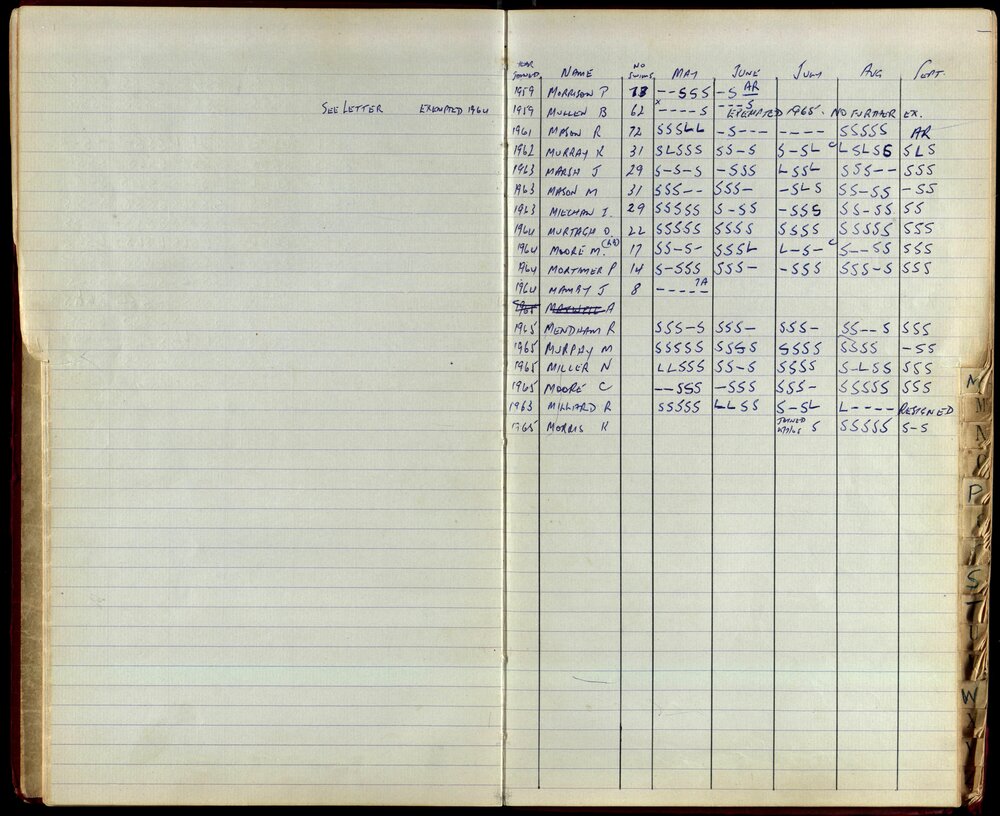 SEE LETTER EXEMPTED 1964
YEAR JOINED NAME NO SWIMS MAY JUNE JULY AUG SEPT.
1959 MORRISON P 73 --SSS -S AR
1959 MULLEN B 62 x ----S ---S EXEMPTED 1965. NO FURTHER EX.
1961 MASON R 72 SSSLL -S--- ---- SSSSS AR
1962 MURRAY K 31 SLSSS SS-S S-SL C LSLSS SLS
1963 MARSH J 29 S-S-S -SSS LSSL SSS-- SSS
1963 MASON M 31 SSS-- SSS- -SLS SS-SS -SS
1963 MEEGHAN I. 29 SSSSS S-SS -SSS SS-SS SS
1964 MURTAGH O. 22 SSSSS SSSS SSSS SSSSS SSS
1964 MOORE M. 17 SS-S- SSSL L-S- C S--SS SSS
1964 MORTIMER P 14 S-SSS SSS- -SSS SSS-S SSS
1964 MAMBY J 8 -----
A
1965 MENDHAM R SSS-S SSS- SSS- SS--S SSS
1965 MURPHY M SSSSS SSSS SSSS SSSS -SS
1965 MILLER N LLSSS SS-S SSSS S-LSS SSS
1965 MOORE C --SSS -SSS SSS- SSSSS SSS
1963 MILLIARD R SSSSS LLSS S-SL L---- RESIGNED
1965 MORRIS K JOINED S SSSSS S-S
M
M
N
P
S
T
U
W
Y